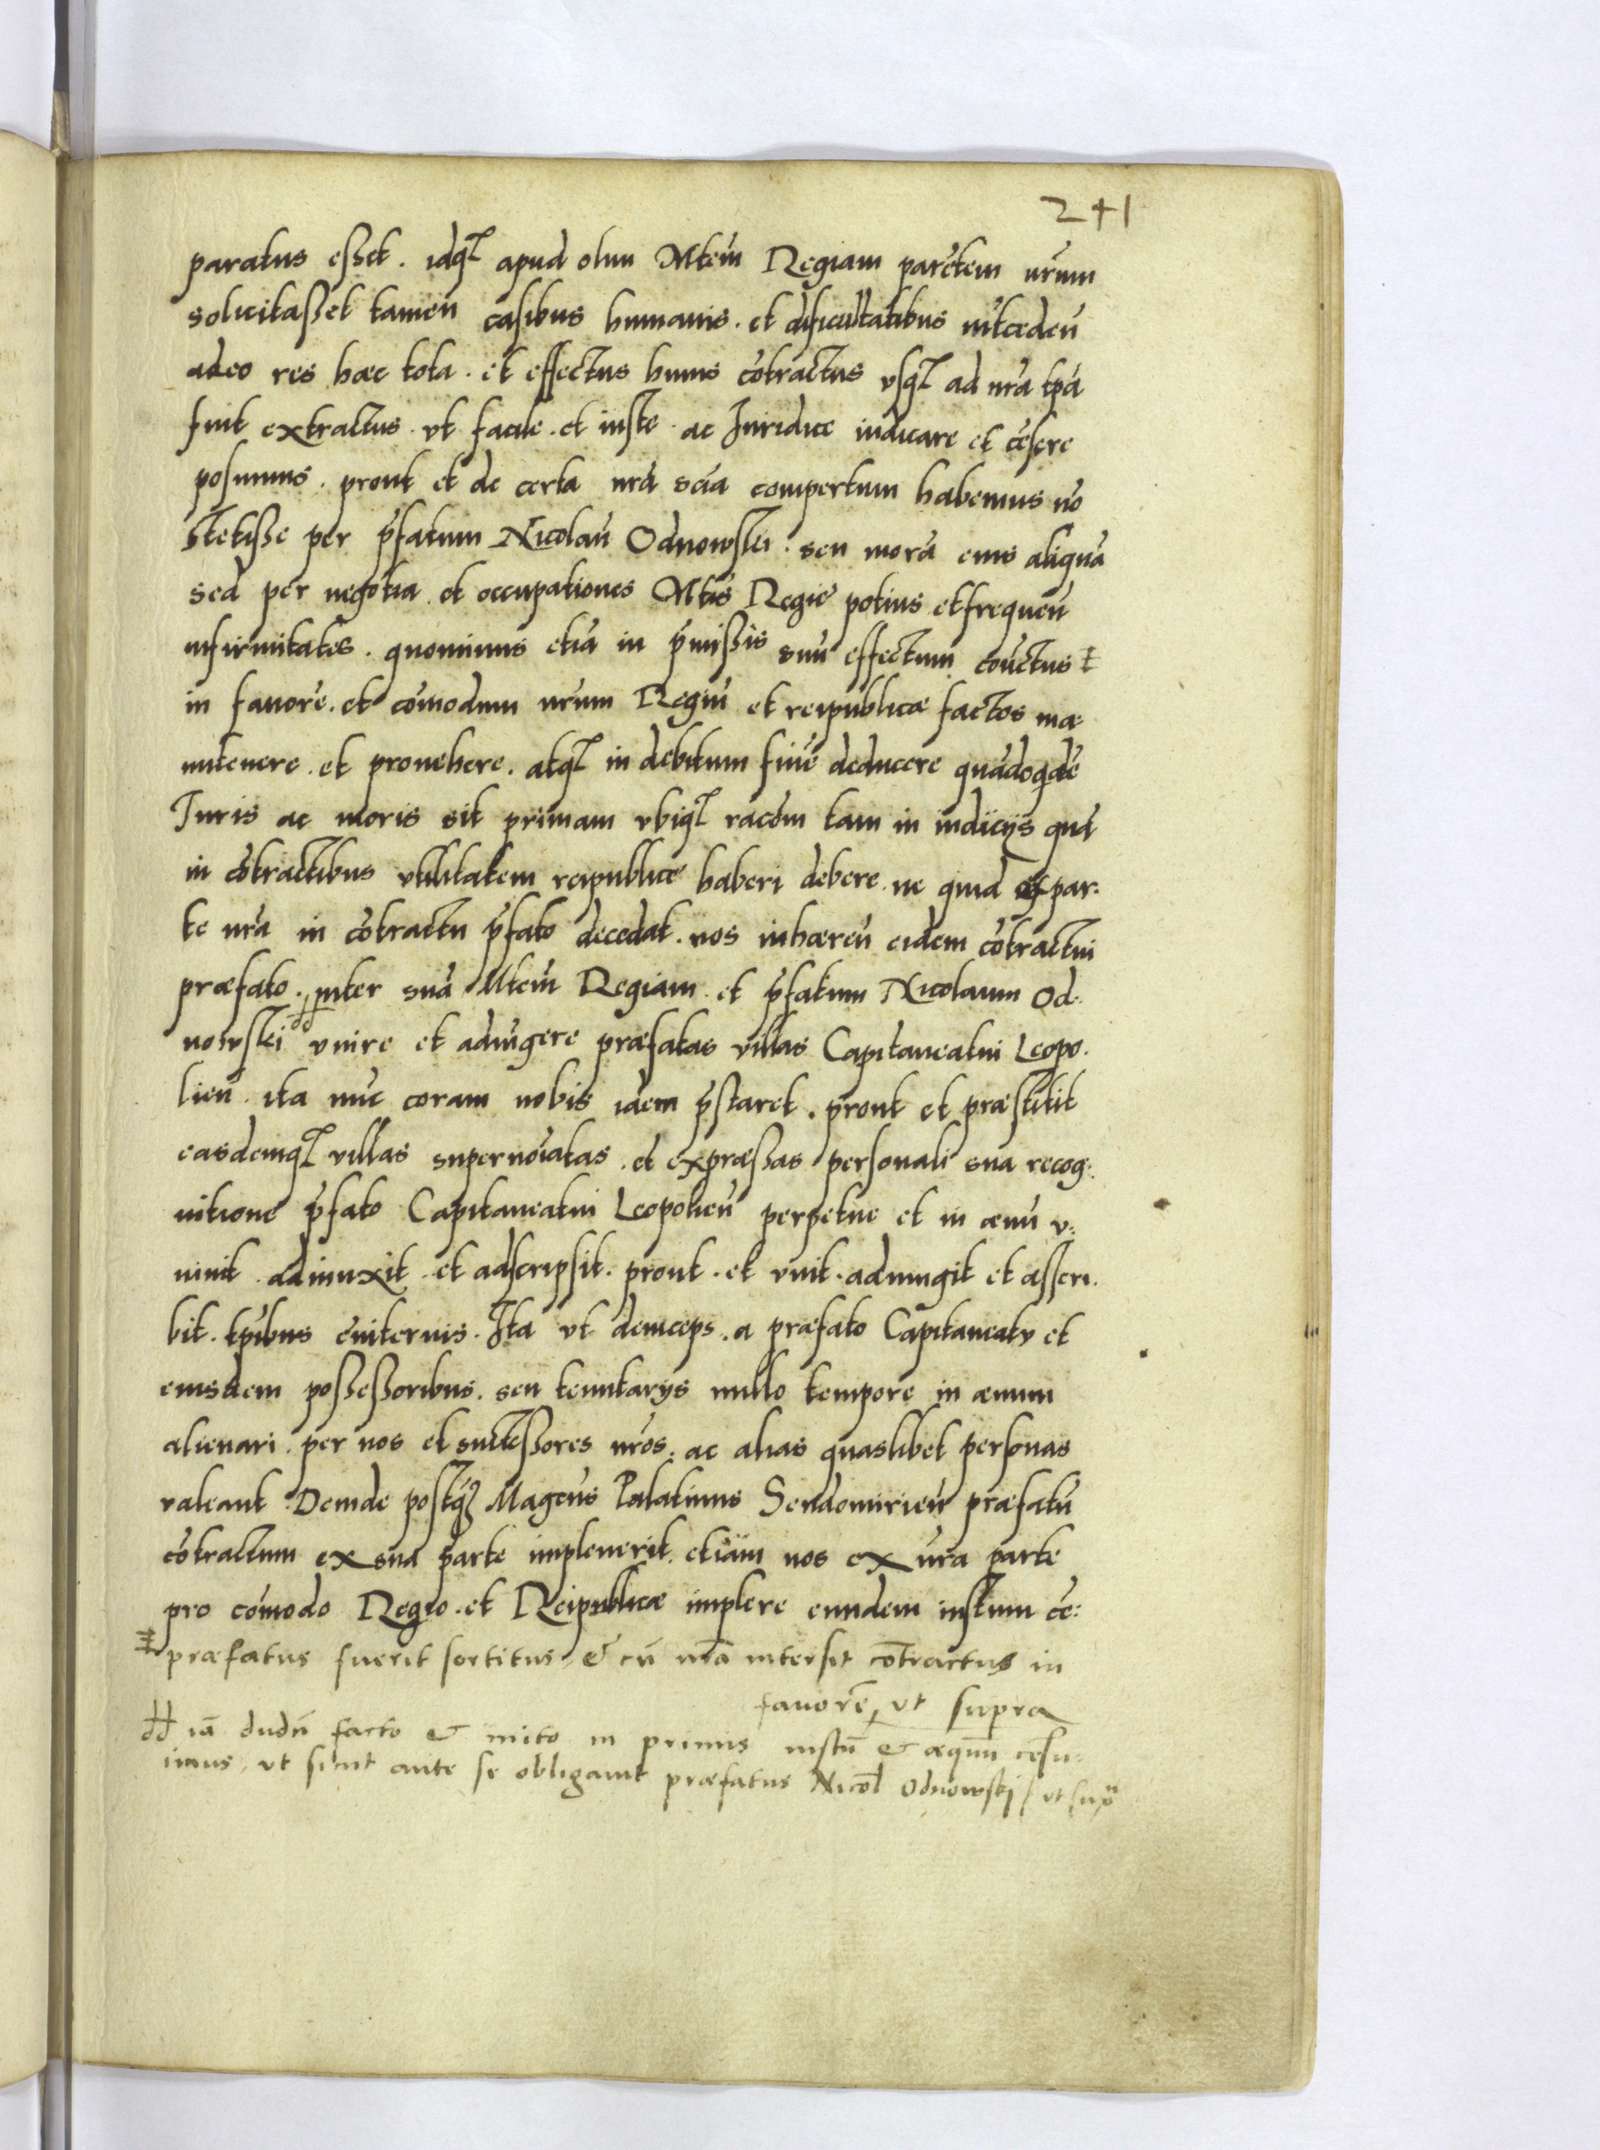 241
paratus esset. idqꝫ apud olim Mtem̄ Regiam parētem nr̄um
solicitasset tamen casibus humanis. et dificultatibus ītceden̄
adeo res haec tota. et effectus huius cōtractus vsqꝫ ad nr̄a tpā
fuit extractus. vt facile. et iuste. ac Iuridice iudicare et cēsere
possumus. prout et de certa nrā sciā compertum habemus nō
stetisse per p̄fatum Nicolaū Odnowski. seu morā eius aliquā
sed per negotia. et occupationes Mtis Regiē potius et frequen̄
infirmitates. quominus etiā in p̄missis suū effectum cōtctus ‡
in fauorē. et cōmodum nr̄um Regiū et reipublicæ factos ma
nutenere. et prouehere. atqꝫ in debitum finē deducere quādoqdē
Iuris ac moris sit primam vbiqꝫ racōm tam in iudicijs quā
in cōtractibus vtilitatem reipublicē haberi debere. ne quid ex par.
te nr̄a in cōtractu p̄fato decedat. nos inhæren̄ eidem cōtractui
præfato. inter suā Mtem̄ Regiam. et p̄fatum Nicolaum Od.
nowski vnire et adiūgere præfatas villas Capitaneatui Leopo.
lien̄. ita nūc coram nobis idem p̄staret. prout et præstitit
easdemqꝫ villas supernoīatas. et expræssas personali sua recog:
nitione p̄fato Capitaneatui Leopolien̄ perpetue et in æuū v:
niuit. adiunxit. et adscripsit. prout. et vnit. adiungit et asseri.
bit. tpībus ēuiternis. Ita vt deinceps. a præfato Capitaneatv et
eiusdem possessoribus. seu tenutarijs nullo tempore in æuum
alienari. per nos et successores nr̄os. ac alias quaslibet personas
valeant. Deinde postqꝫ Magcūs Palatinus Sendomirien̄ præfatū
cōtractum ex sua parte impleuerit. etiam nos ex nr̄a parte
pro cōmodo Regio. et Reipublicæ implere eundem iustum cē:
‡ præfatus fuerit sortitus, & cū nr̄a intersit cōtractus in
fauorē, vt supra
iā dudū facto & inito in primis iustū & æquū cēsu:
imus, vt sicut ante se obligauit præfatus Nicol Odnowskj / vt supᵃ